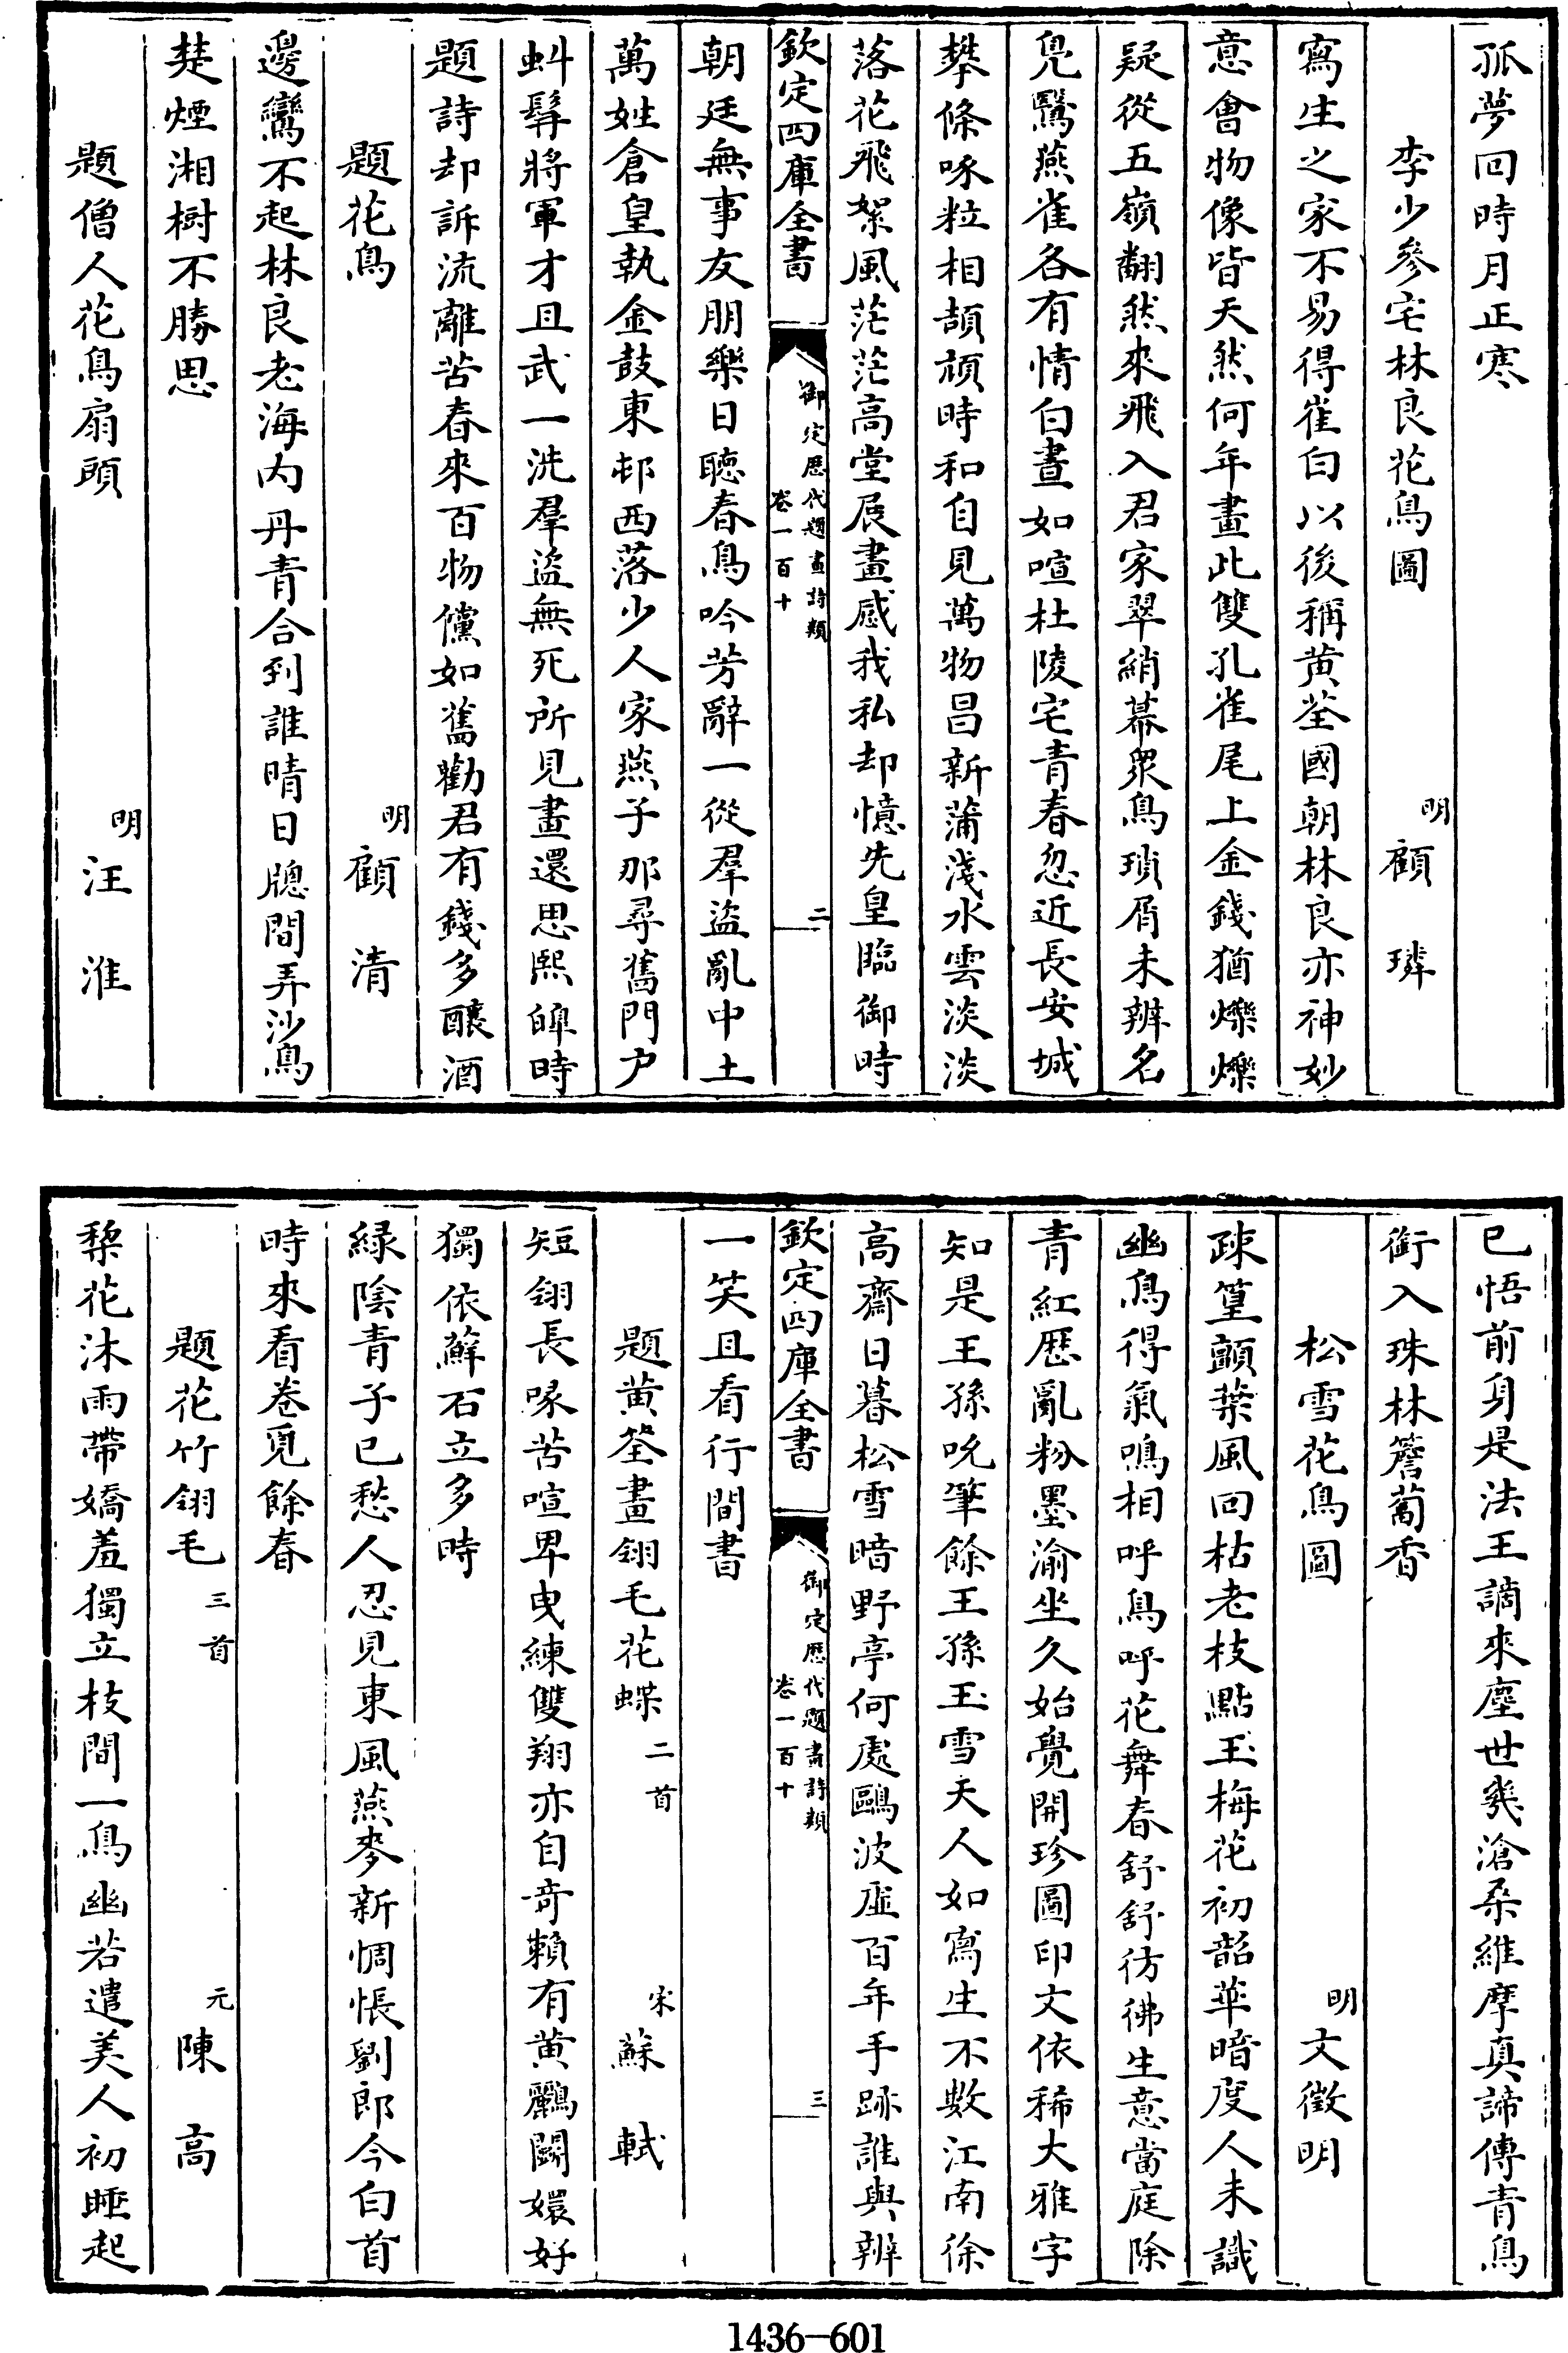 孤夢回時月正寒
李少參宅林良花鳥圖
明顧璘
寫生之家不易得崔白以後稱黄荃國朝林良亦神妙
意會物像皆天然何年畫此雙孔雀尾上金錢猶爍爍
疑從五嶺翻然來飛入君家翠綃幕衆鳥瑣屑未辨名
鳬鷖燕雀各有情白晝如喧杜陵宅青春忽近長安城
攀條啄粒相頡頏時和自見萬物昌新蒲淺水雲淡淡
落花飛絮風茫茫高堂展畫感我私却憶先皇臨御時
欽定四庫全書
御定歴代題畫詩類
卷一百十
二
朝廷無事友朋樂日聽春鳥吟芳辭一從羣盜亂中土
萬姓倉皇執金鼓東邨西落少人家燕子那尋舊門户
虯髯將軍才且武一洗羣盜無死所見畫還思熙皥時
題詩却訴流離苦春來百物儻如舊勸君有錢多釀酒
題花鳥
明顧清
邊鸞不起林良老海内丹青合到誰晴日牎間弄沙鳥
楚煙湘樹不勝思
題僧人花鳥扇頭
明汪淮
已悟前身是法王謫來塵世幾滄桑維摩真諦傳青鳥
銜入珠林簷蔔香
松雪花鳥圖
明文徵明
疎篁顫葉風回枯老枝點玉梅花初韶華暗度人未識
幽鳥得氣鳴相呼鳥呼花舞春舒舒彷彿生意當庭除
青紅歴亂粉墨渝坐久始覺開珍圖印文依稀大雅字
知是王孫吮筆餘王孫玉雪天人如寫生不數江南徐
高齋日暮松雪暗野亭何處鷗波虛百年手跡誰與辨
欽定四庫全書
御定歴代題畫詩類
卷一百十
三
一笑且看行間書
題黄筌畫翎毛花蝶二首
宋蘇軾
短翎長喙苦喧卑曳練雙翔亦自奇賴有黄鸝鬭嬛好
獨依蘚石立多時
緑陰青子已愁人忍見東風燕麥新惆悵劉郎今白首
時來看卷覓餘春
題花竹翎毛三首
元陳高
棃花沐雨帶嬌羞獨立枝間一鳥幽若遣美人初睡起
1436-601